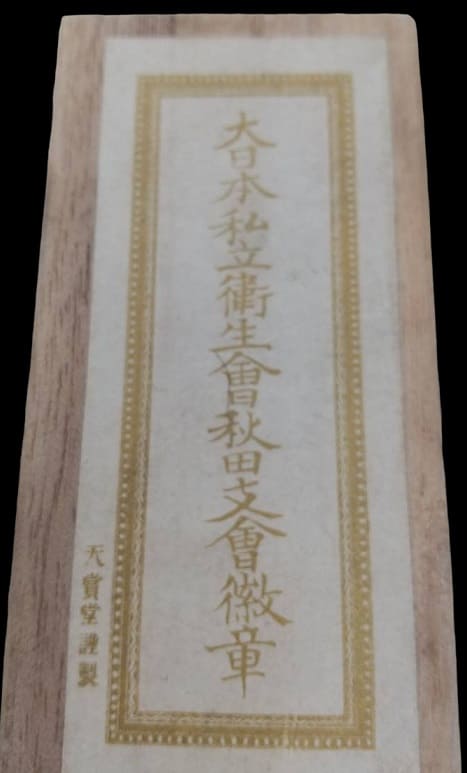 大日本私立衛生會秋田支會徽章
天賞堂謹製